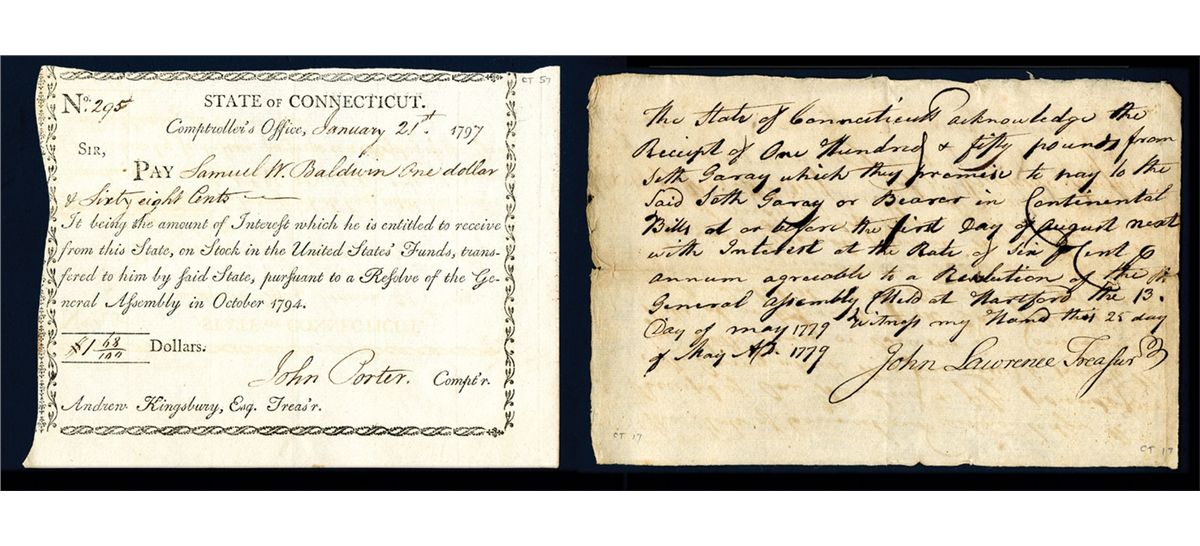 CT 57
No. 295 STATE OF CONNECTICUT.
Comptroller's Office, January 21st. 1797
SIR,
PAY Samuel W. Baldwin One dollar
& Sixty eight Cents
It being the amount of Interest which he is entitled to receive
from this State, on Stock in the United States' Funds, trans-
fered to him by said State, pursuant to a Resolve of the Ge-
neral Assembly in October 1794.
$1 68/100 Dollars.
John Porter. Compt'r.
Andrew Kingsbury, Esq. Treas'r.
The State of Connecticut acknowledge the
Receipt of One Hundred & fifty pounds from
Seth Garay which they promise to pay to the
Said Seth Garay or Bearer in Continental
Bills at or before the first Day of August next
with Interest at the Rate of Six Cent
annum agreeable to a Resolution of the
General Assembly Held at Hartford the 13.
Day of may 1779 Witness my Hand this 25 day
of May AD. 1779 John Lawrence Treasur
CT 17
CT 17